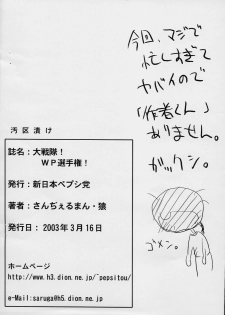 今回、マジで
忙しすぎて
ヤバイので
「作者くん」
ありません。
ガックシ。
ゴメン。
汚区漬け
誌名:大戦隊!
WP選手権!
発行:新日本ペプシ党
著者:さんぢぇるまん・猿
発行日:2003年3月16日
ホームページ
http://www.h3.dion.ne.jp/~pepsitou/
e-Mail:saruga@h5.dion.ne.jp